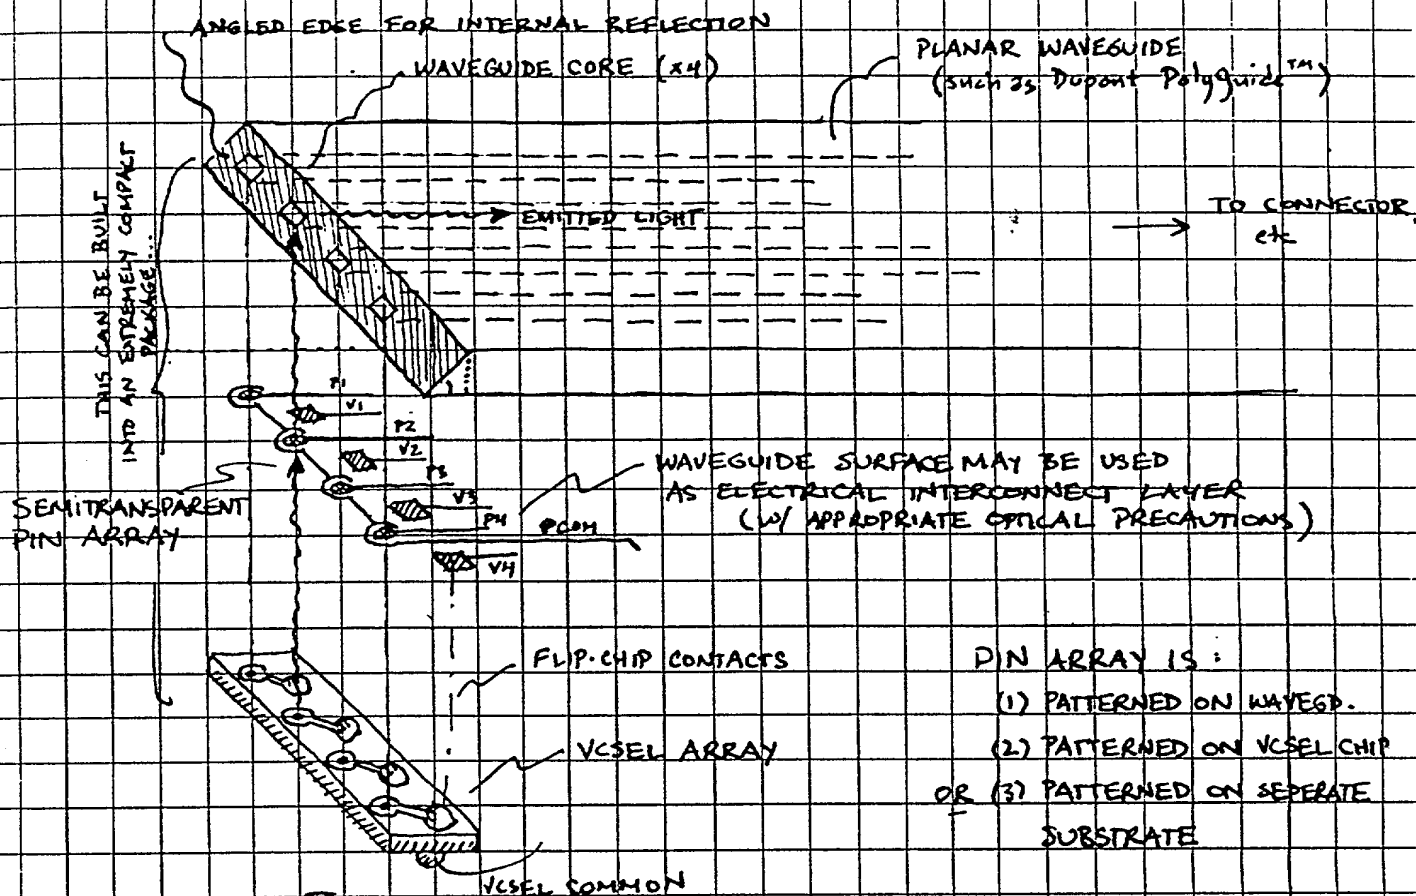 ANGLED EDGE FOR INTERNAL REFLECTION
WAVEGUIDE CORE (x4)
PLANAR WAVEGUIDE
(such as Dupont Polyguide™)
THIS CAN BE BUILT
INTO AN EXTREMELY COMPACT
PACKAGE...
EMITTED LIGHT
TO CONNECTOR,
etc
P1
V1
P2
V2
P3
V3
P4
PCOM
V4
SEMITRANSPARENT
PIN ARRAY
WAVEGUIDE SURFACE MAY BE USED
AS ELECTRICAL INTERCONNECT LAYER
(W/ APPROPRIATE OPTICAL PRECAUTIONS)
FLIP-CHIP CONTACTS
VCSEL ARRAY
VCSEL COMMON
PIN ARRAY IS:
(1) PATTERNED ON WAVEGD.
(2) PATTERNED ON VCSEL CHIP
OR (3) PATTERNED ON SEPERATE
SUBSTRATE